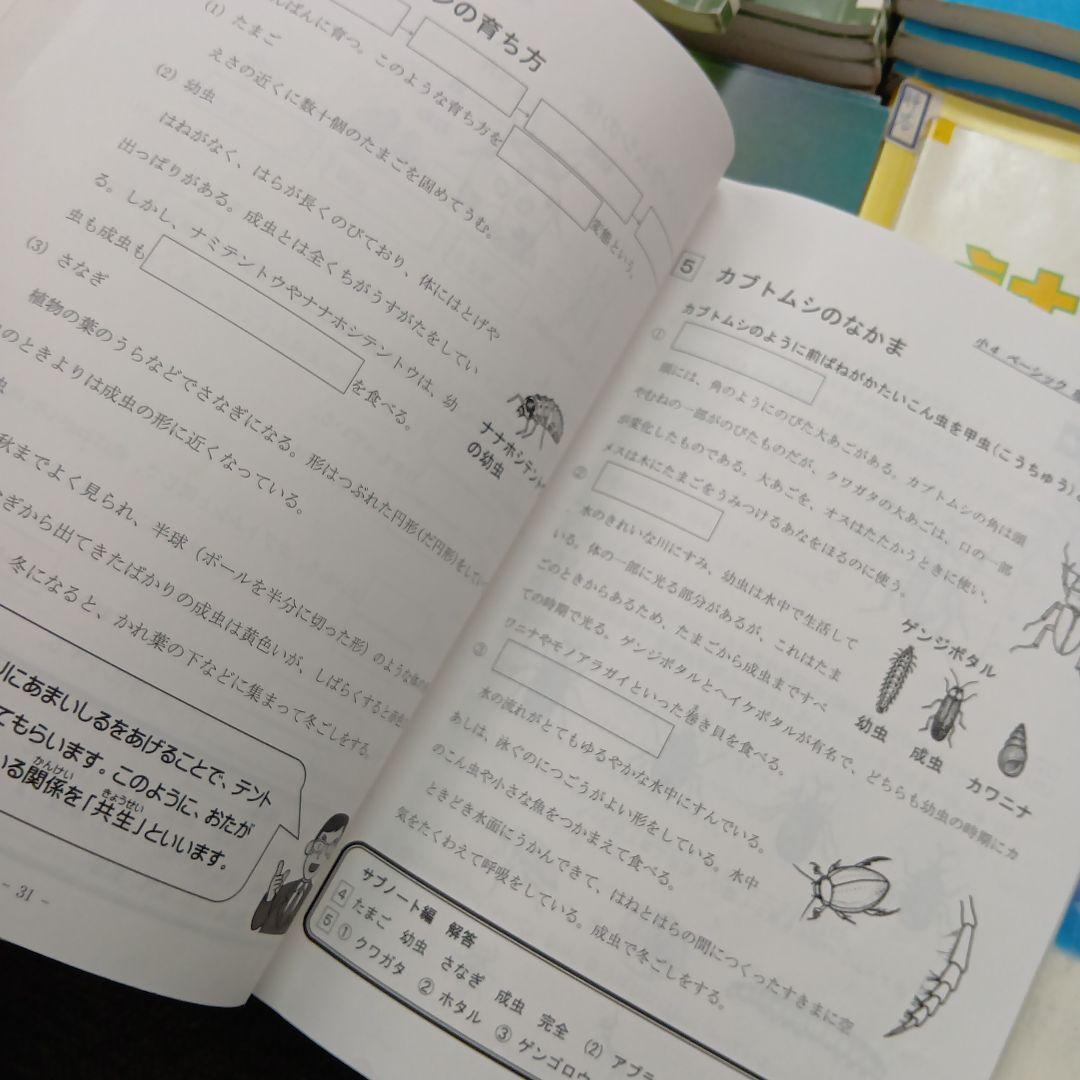 シの育ち方
んぱんに育つ。このような育ち方を
変態という。
(1) たまご
えさの近くに数十個のたまごを固めてうむ。
(2) 幼虫
はねがなく、はらが長くのびており、体にはとげや
出っぱりがある。成虫とは全くちがうすがたをしてい
る。しかし、ナミテントウやナナホシテントウは、幼
虫も成虫も
を食べる。
ナナホシテント
の幼虫
(3) さなぎ
植物の葉のうらなどでさなぎになる。形はつぶれた円形(だ円形)をしてい
のときよりは成虫の形に近くなっている。
虫
秋までよく見られ、半球（ボールを半分に切った形）のような体
なぎから出てきたばかりの成虫は黄色いが、しばらくすると
冬になると、かれ葉の下などに集まって冬ごしをする。
にあまいしるをあげることで、テント
てもらいます。このように、おたが
いる関係を「共生」といいます。
かんけい
きょうせい
- 31 -
小4 ベーシック
5 カブトムシのなかま
カブトムシのように前ばねがかたいこん虫を甲虫(こうちゅう)
①
頭には、角のようにのびた大あごがある。カブトムシの角は頭
やむねの一部がのびたものだが、クワガタの大あごは、口の一部
が変化したものである。大あごを、オスはたたかうときに使い、
メスは木にたまごをうみつけるあなをほるのに使う。
②
水のきれいな川にすみ、幼虫は水中で生活して
いる。体の一部に光る部分があるが、これはたま
ごのときからあるため、たまごから成虫まですべ
ての時期で光る。ゲンジボタルとヘイケボタルが有名で、どちらも幼虫の時期にカ
ワニナやモノアラガイといった巻き貝を食べる。
ゲンジボタル
幼虫 成虫 カワニナ
③
水の流れがとてもゆるやかな水中にすんでいる。
あしは、泳ぐのにつごうがよい形をしている。水中
のこん虫や小さな魚をつかまえて食べる。
ときどき水面にうかんできて、はねとはらの間につくったすきまに空
気をたくわえて呼吸をしている。成虫で冬ごしをする。
サブノート編 解答
4 たまご 幼虫 さなぎ 成虫 完全 (2) アブラ
5 ① クワガタ ② ホタル ③ ゲンゴロウ